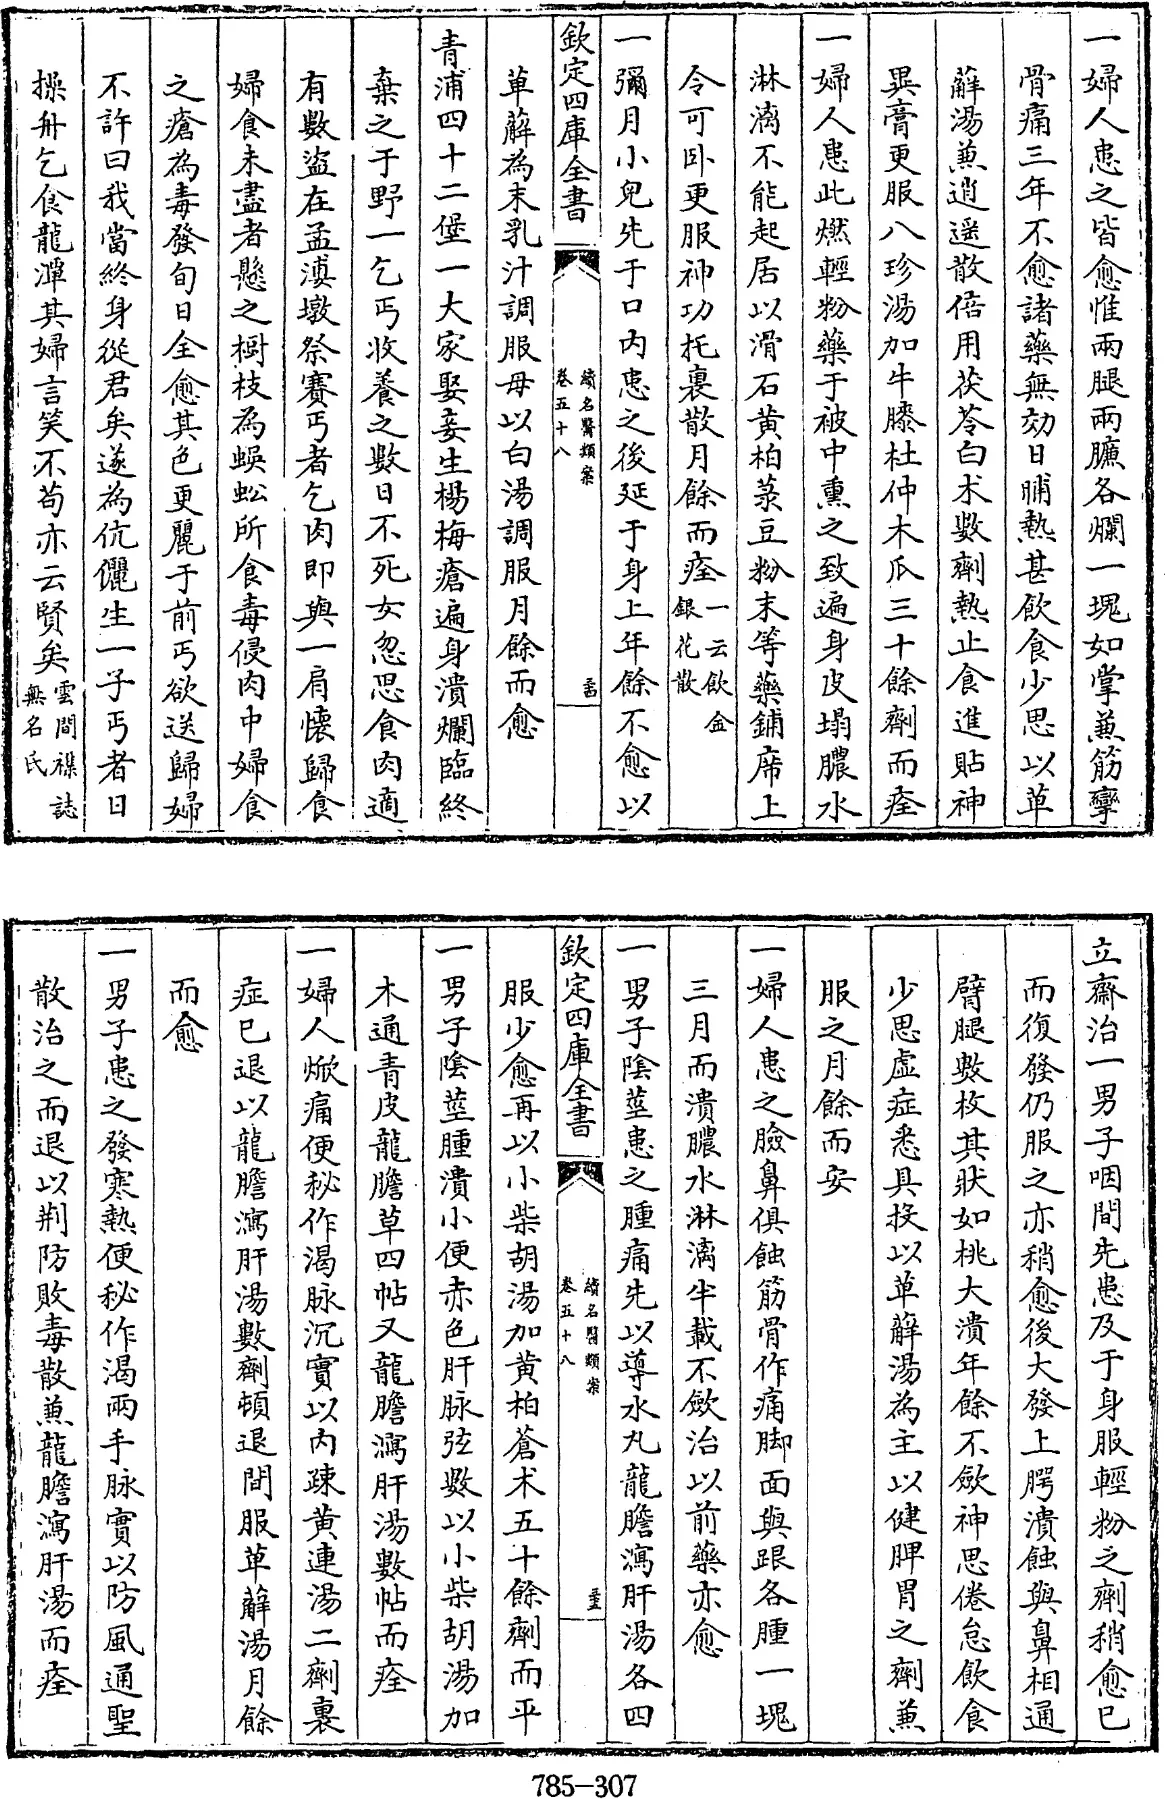 一婦人患之皆愈惟兩腿兩臁各爛一塊如掌兼筋攣
骨痛三年不愈諸藥無効日晡熱甚飲食少思以萆
薢湯兼逍遥散倍用茯苓白术數劑熱止食進貼神
異膏更服八珍湯加牛膝杜仲木瓜三十餘劑而痊
一婦人患此燃輕粉藥于被中熏之致遍身皮塌膿水
淋漓不能起居以滑石黄柏菉豆粉末等藥鋪席上
令可卧更服神功托裏散月餘而痊一云飲金銀花散
一彌月小兒先于口内患之後延于身上年餘不愈以
欽定四庫全書
續名醫類案
卷五十八
萆薢為末乳汁調服母以白湯調服月餘而愈
青浦四十二堡一大家娶妾生楊梅瘡遍身潰爛臨終
棄之于野一乞丐收養之數日不死女忽思食肉適
有數盜在孟瀆墩祭賽丐者乞肉即與一肩懐歸食
婦食未盡者懸之樹枝為蜈蚣所食毒侵肉中婦食
之瘡為毒發旬日全愈其色更麗于前丐欲送歸婦
不許曰我當終身從君矣遂為伉儷生一子丐者日
操舟乞食龍潭其婦言笑不苟亦云賢矣雲間襍誌無名氏
立齋治一男子咽間先患及于身服輕粉之劑稍愈已
而復發仍服之亦稍愈後大發上腭潰蝕與鼻相通
臂腿數枚其狀如桃大潰年餘不斂神思倦怠飲食
少思虚症悉具投以萆薢湯為主以健脾胃之劑兼
服之月餘而安
一婦人患之臉鼻俱蝕筋骨作痛脚面與跟各腫一塊
三月而潰膿水淋漓半載不斂治以前藥亦愈
一男子陰莖患之腫痛先以導水丸龍膽瀉肝湯各四
欽定四庫全書
續名醫類案
卷五十八
服少愈再以小柴胡湯加黄柏蒼术五十餘劑而平
一男子陰莖腫潰小便赤色肝脉弦數以小柴胡湯加
木通青皮龍膽草四帖又龍膽瀉肝湯數帖而痊
一婦人焮痛便秘作渴脉沉實以内疎黄連湯二劑裏
症已退以龍膽瀉肝湯數劑頓退間服萆薢湯月餘
而愈
一男子患之發寒熱便秘作渴兩手脉實以防風通聖
散治之而退以荆防敗毒散兼龍膽瀉肝湯而痊
785-307